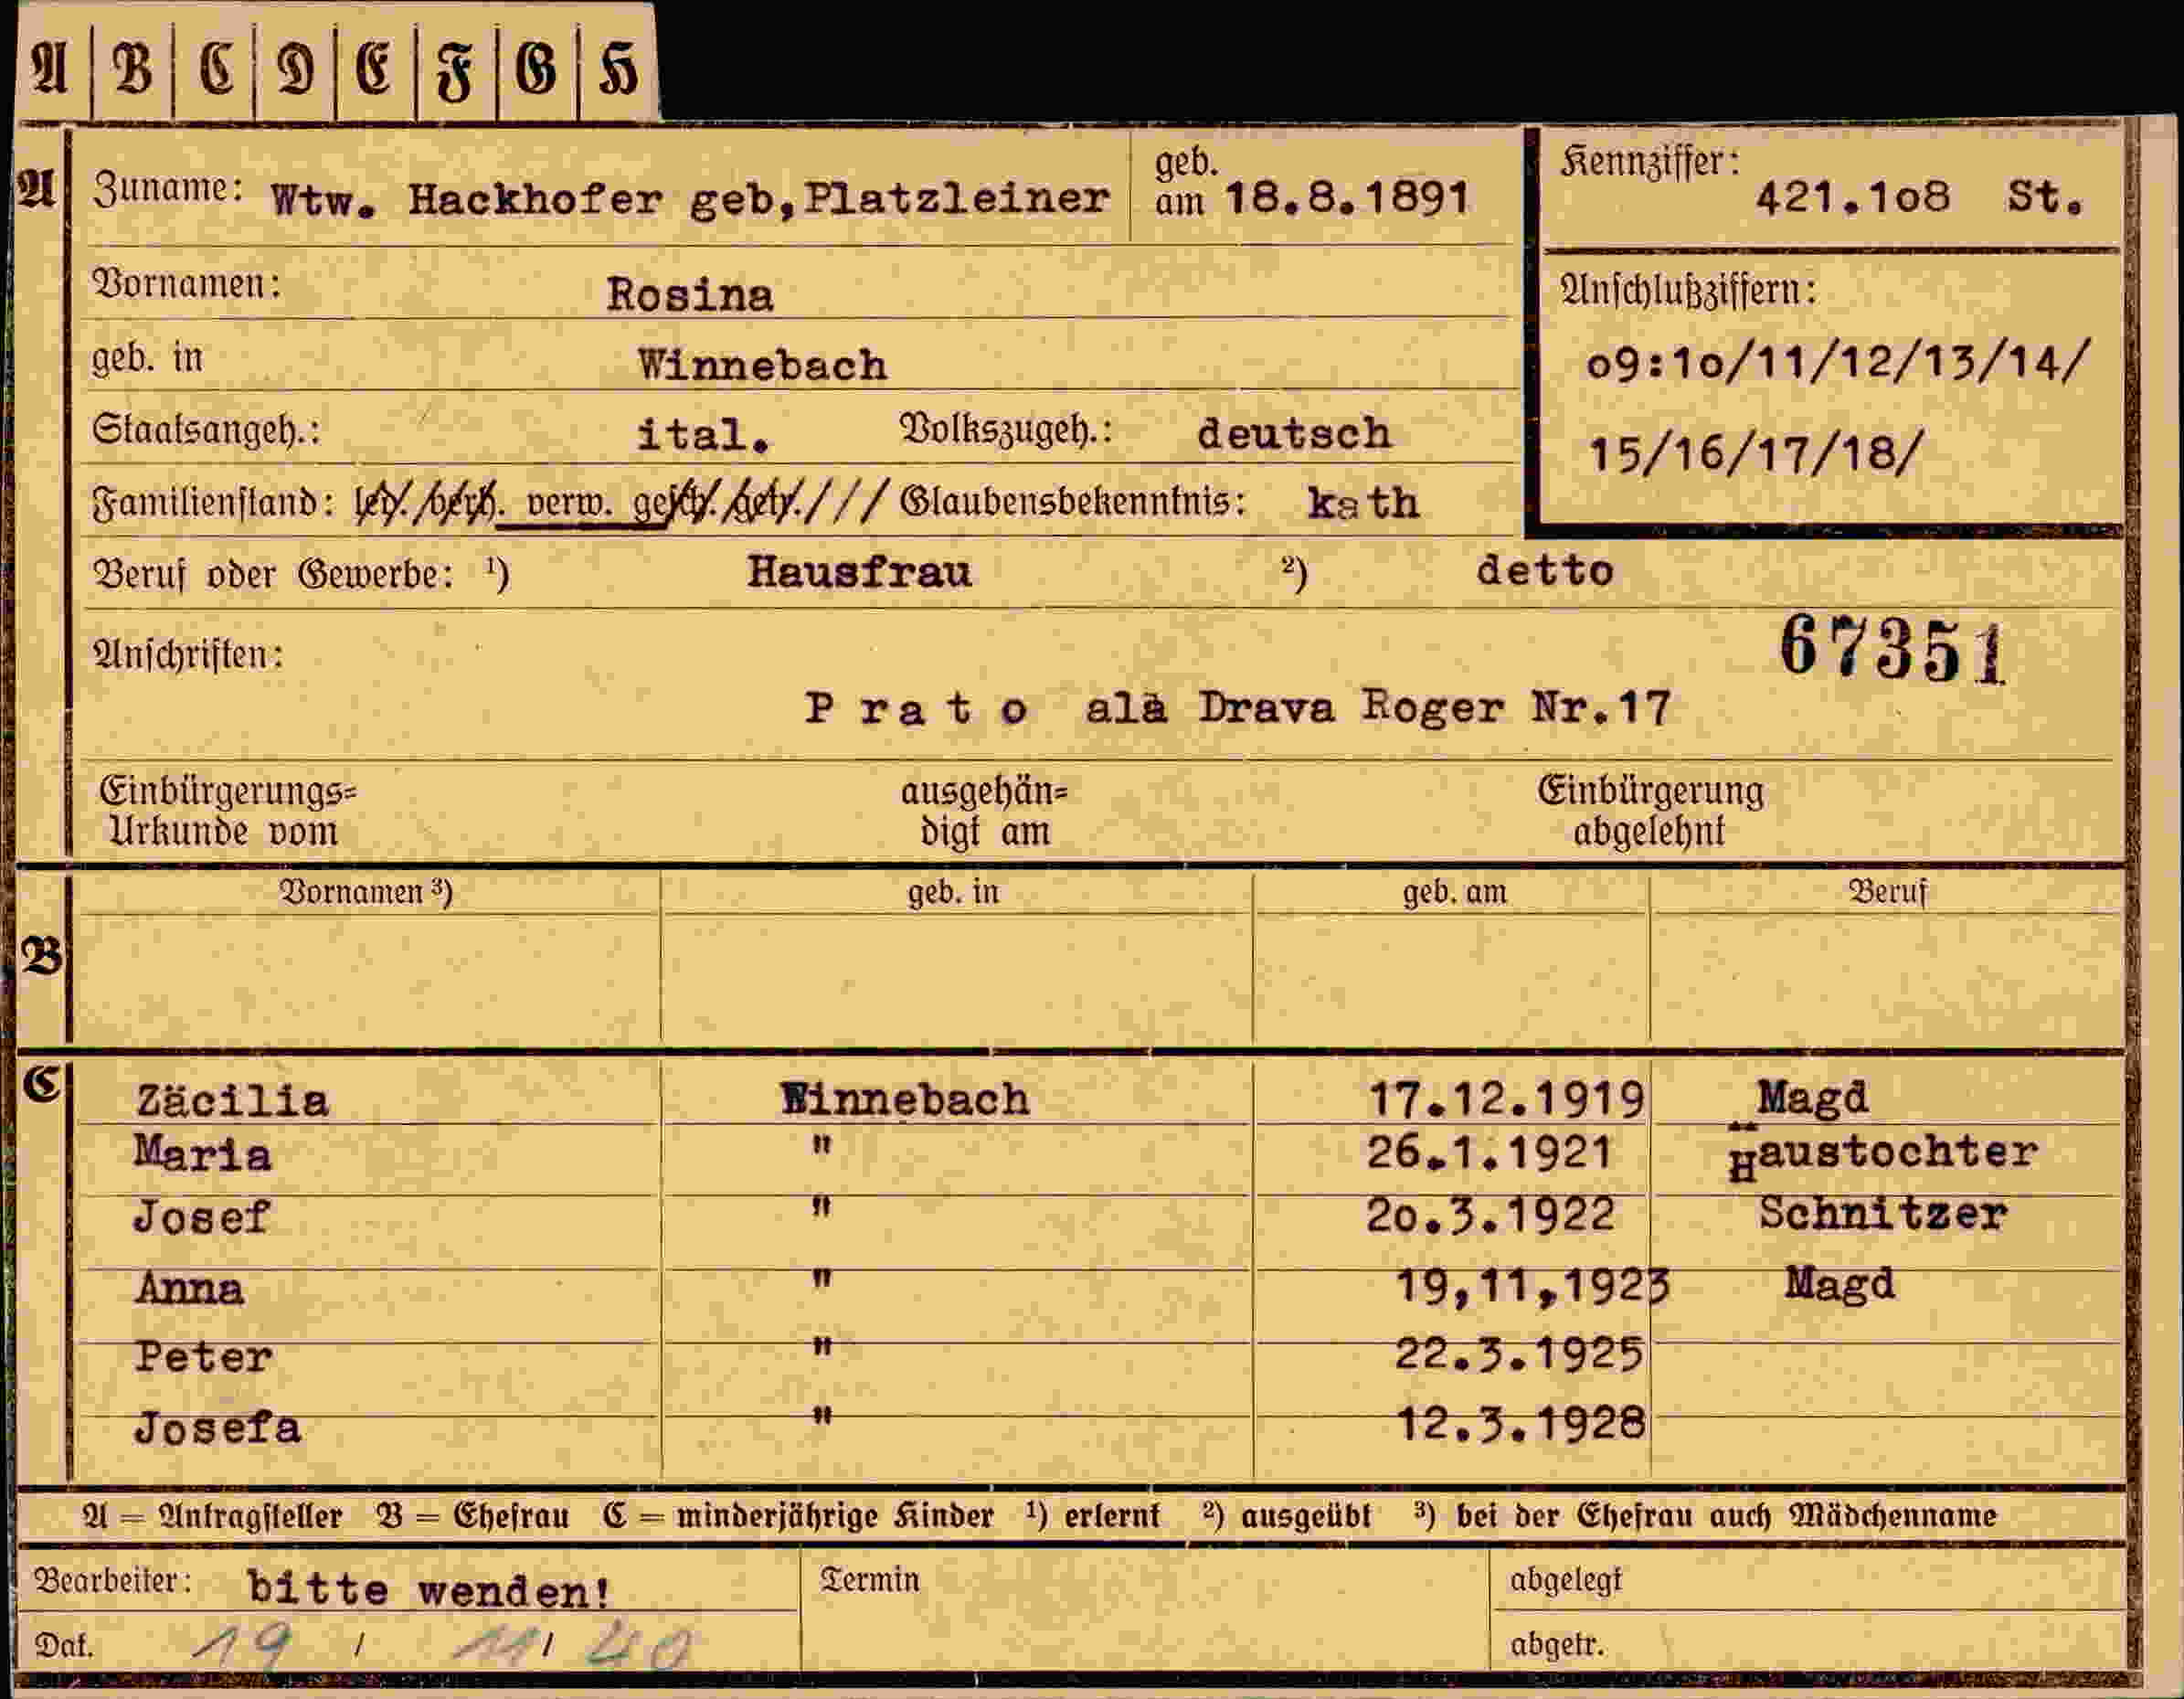 A B C D E F G H
A Zuname: Wtw. Hackhofer geb,Platzleiner geb. am 18.8.1891 Kennziffer: 421.1o8 St.
Vornamen: Rosina
Anschlußziffern:
geb. in Winnebach
o9:1o/11/12/13/14/
Staatsangeh.: ital. Volkszugeh.: deutsch
15/16/17/18/
Familienstand: led./verh. verw. gesch./getr./// Glaubensbekenntnis: kath
Beruf oder Gewerbe: ¹) Hausfrau ²) detto
67351
Anschriften:
P r a t o alà Drava Roger Nr.17
Einbürgerungs= ausgehän= Einbürgerung
Urkunde vom digt am abgelehnt
Vornamen ³) geb. in geb. am Beruf
B
C Zäcilia Winnebach 17.12.1919 Magd
Maria " 26.1.1921 Haustochter
Josef " 2o.3.1922 Schnitzer
Anna " 19,11,1923 Magd
Peter " 22.3.1925
Josefa " 12.3.1928
A = Antragsteller B = Ehefrau C = minderjährige Kinder ¹) erlernt ²) ausgeübt ³) bei der Ehefrau auch Mädchenname
Bearbeiter: bitte wenden! Termin abgelegt
Dat. 19 / 11/ 40 abgetr.